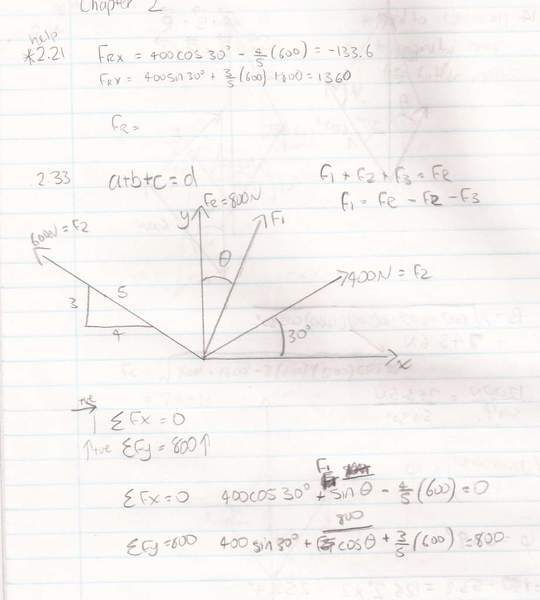 Chapter 2
help
*2.21 FRX = 400cos 30° - 4/5 (600) = -133.6
FRY = 400sin30° + 3/5 (600) + 800 = 1360
FR =
2.33 a+b+c = d F1 + F2 + F3 = FR
F1 = FR - F2 - F3
y FR = 800N F1
600N = F2
θ
400N = F2
3 5
4
30°
x
+ve
ΣFx = 0
↑+ve ΣFy = 800↑
F1
ΣFx = 0 400cos 30° + sin θ - 4/5 (600) = 0
800
ΣFy = 800 400 sin 30° + cos θ + 3/5 (600) = 800